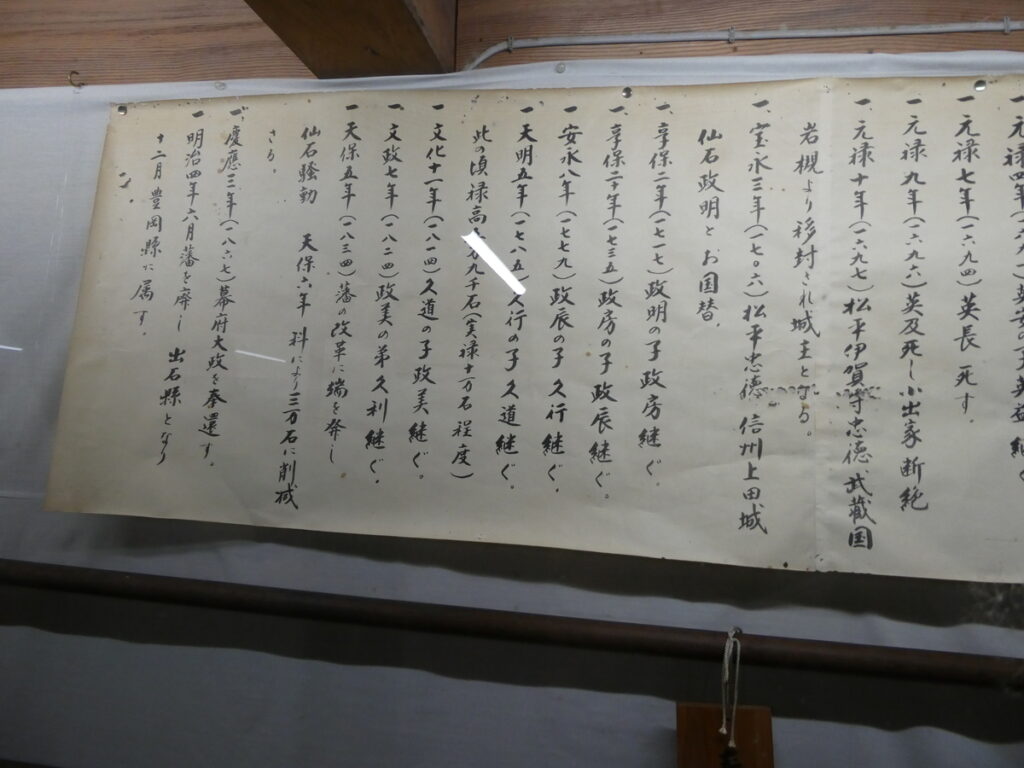 一、元禄四年(一六九一)英安の子英益継ぐ
一、元禄七年(一六九四)英長 死す
一、元禄九年(一六九六)英及死し小出家断絶
一、元禄十年(一六九七)松平伊賀守忠徳武蔵国
岩槻より移封され城主となる。
一、宝永三年(一七〇六)松平忠徳 信州上田城
仙石政明とお国替。
一、享保二年(一七一七)政明の子政房継ぐ。
一、享保二十年(一七三五)政房の子政辰継ぐ。
一、安永八年(一七七九)政辰の子久行継ぐ。
一、天明五年(一七八五)久行の子久道継ぐ。
此の頃禄高 万九千石(実禄十万石程度)
一、文化十一年(一八一四)久道の子政美継ぐ。
一、文政七年(一八二四)政美の弟久利継ぐ。
一、天保五年(一八三四)藩の改革に端を発し
仙石騒動 天保六年 科により三万石に削減
さる。
一、慶應三年(一八六七)幕府大政を奉還す。
一、明治四年六月藩を廃し 出石縣となり
十二月豊岡縣に属す。